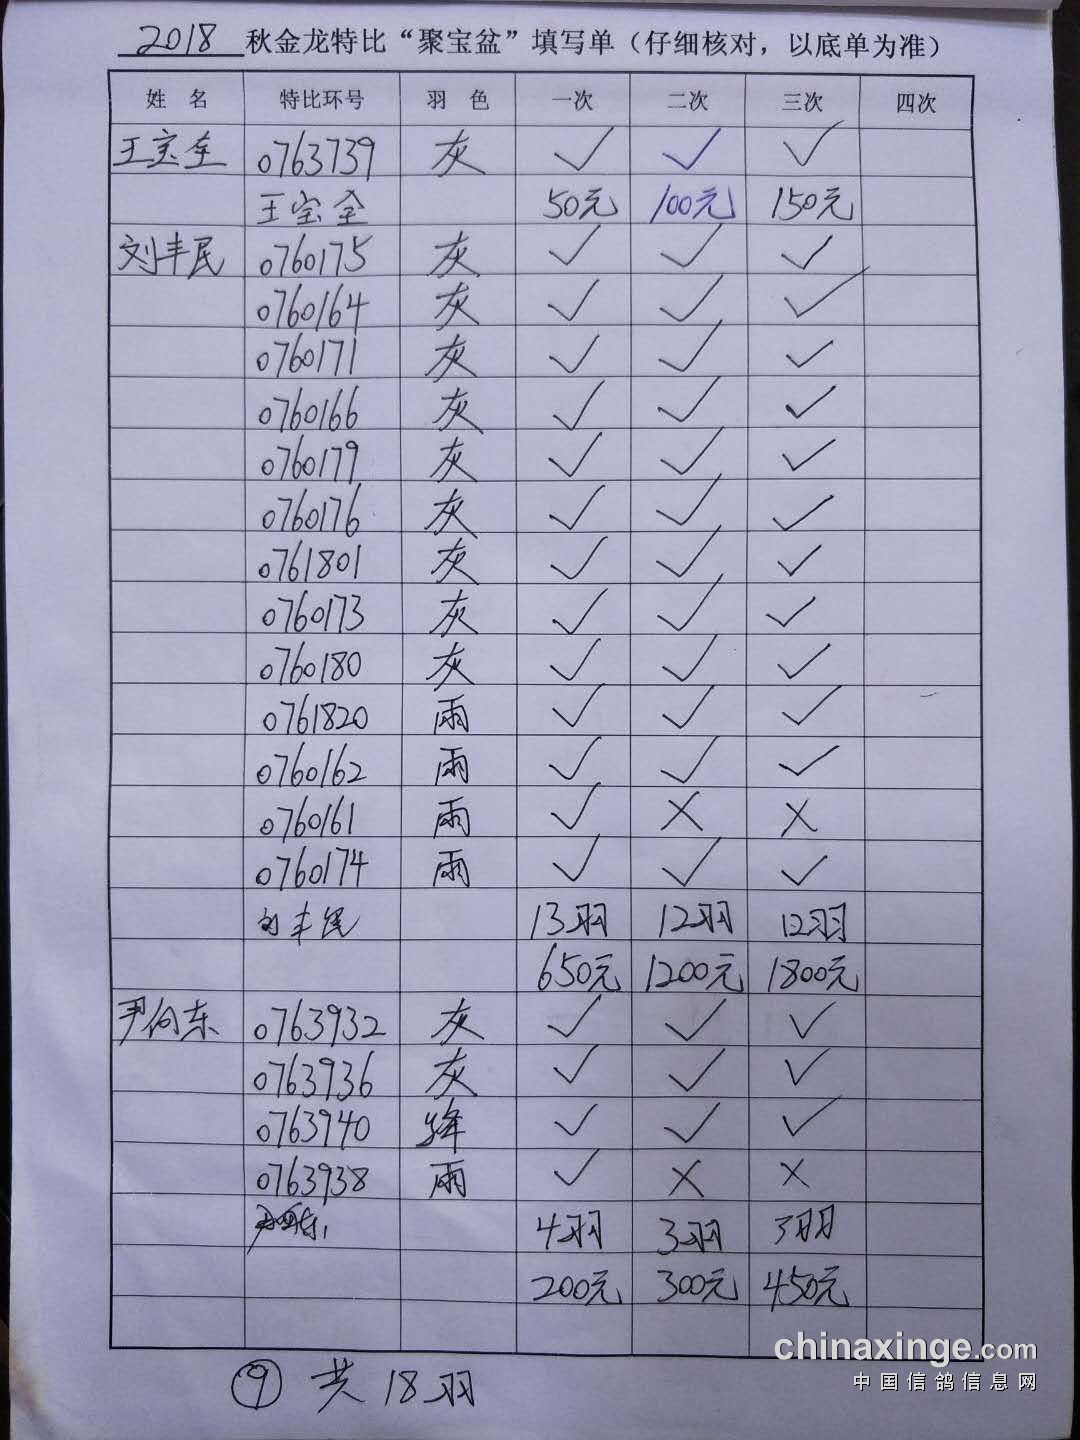 2018 秋金龙特比“聚宝盆”填写单（仔细核对，以底单为准）
姓 名 特比环号 羽 色 一次 二次 三次 四次
王宝全 0763739 灰 ✓ ✓ ✓
王宝全 50元 100元 150元
刘丰民 0760175 灰 ✓ ✓ ✓
0760164 灰 ✓ ✓ ✓
0760171 灰 ✓ ✓ ✓
0760166 灰 ✓ ✓ ✓
0760179 灰 ✓ ✓ ✓
0760176 灰 ✓ ✓ ✓
0761801 灰 ✓ ✓ ✓
0760173 灰 ✓ ✓ ✓
0760180 灰 ✓ ✓ ✓
0761820 雨 ✓ ✓ ✓
0760162 雨 ✓ ✓ ✓
0760161 雨 ✓ × ×
0760174 雨 ✓ ✓ ✓
刘丰民 13羽 12羽 12羽
650元 1200元 1800元
尹向东 0763932 灰 ✓ ✓ ✓
0763936 灰 ✓ ✓ ✓
0763940 绛 ✓ ✓ ✓
0763938 雨 ✓ × ×
4羽 3羽 3羽
200元 300元 450元
⑨ 共18羽
chinaxinge.com
中国信鸽信息网